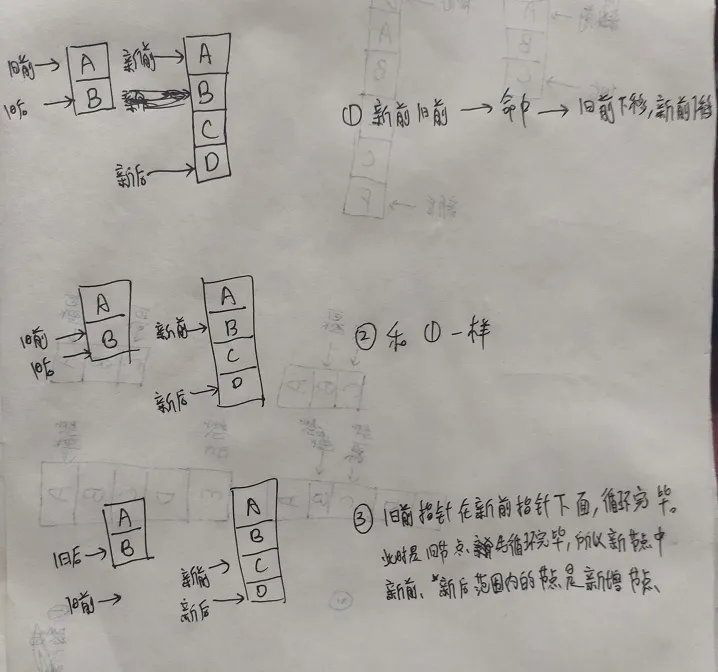 旧前 → A
旧后 → B
新前 → A
B
C
新后 → D
① 新前旧前 → 命中 → 旧前下移,新前下移
A
旧前 → B
旧后 →
A
新前 → B
C
新后 → D
② 和 ① 一样
A
旧后 → B
旧前 →
A
B
新前 → C
新后 → D
③ 旧前指针在新前指针下面,循环完毕。
此时是旧节点 先循环完毕,所以新节点中
新前、新后范围内的节点是新增节点、